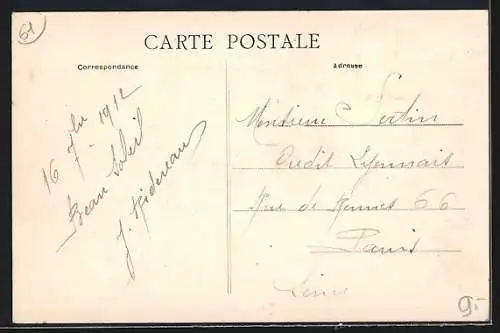 61
CARTE POSTALE
Correspondance
Adresse
16 7bre 1912
Beau Soleil
J.
Monsieur
Crédit Lyonnais
Rue de Rennes 66
Paris
Seine
9.-